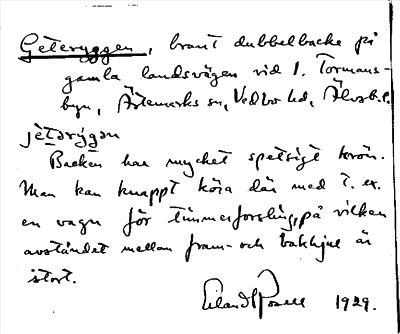 Geteryggen, brant dubbelbacke på
gamla landsvägen vid l. Tormans-
byn, Ärtemarks sn, Vedbo hd, Älvsb.l.
jètərýgən
Backen har mycket spetsigt krön.
Man kan knappt köra där med t. ex.
en vagn för timmerforsling, på vilken
avståndet mellan fram- och bakhjul är
stort.
1929.